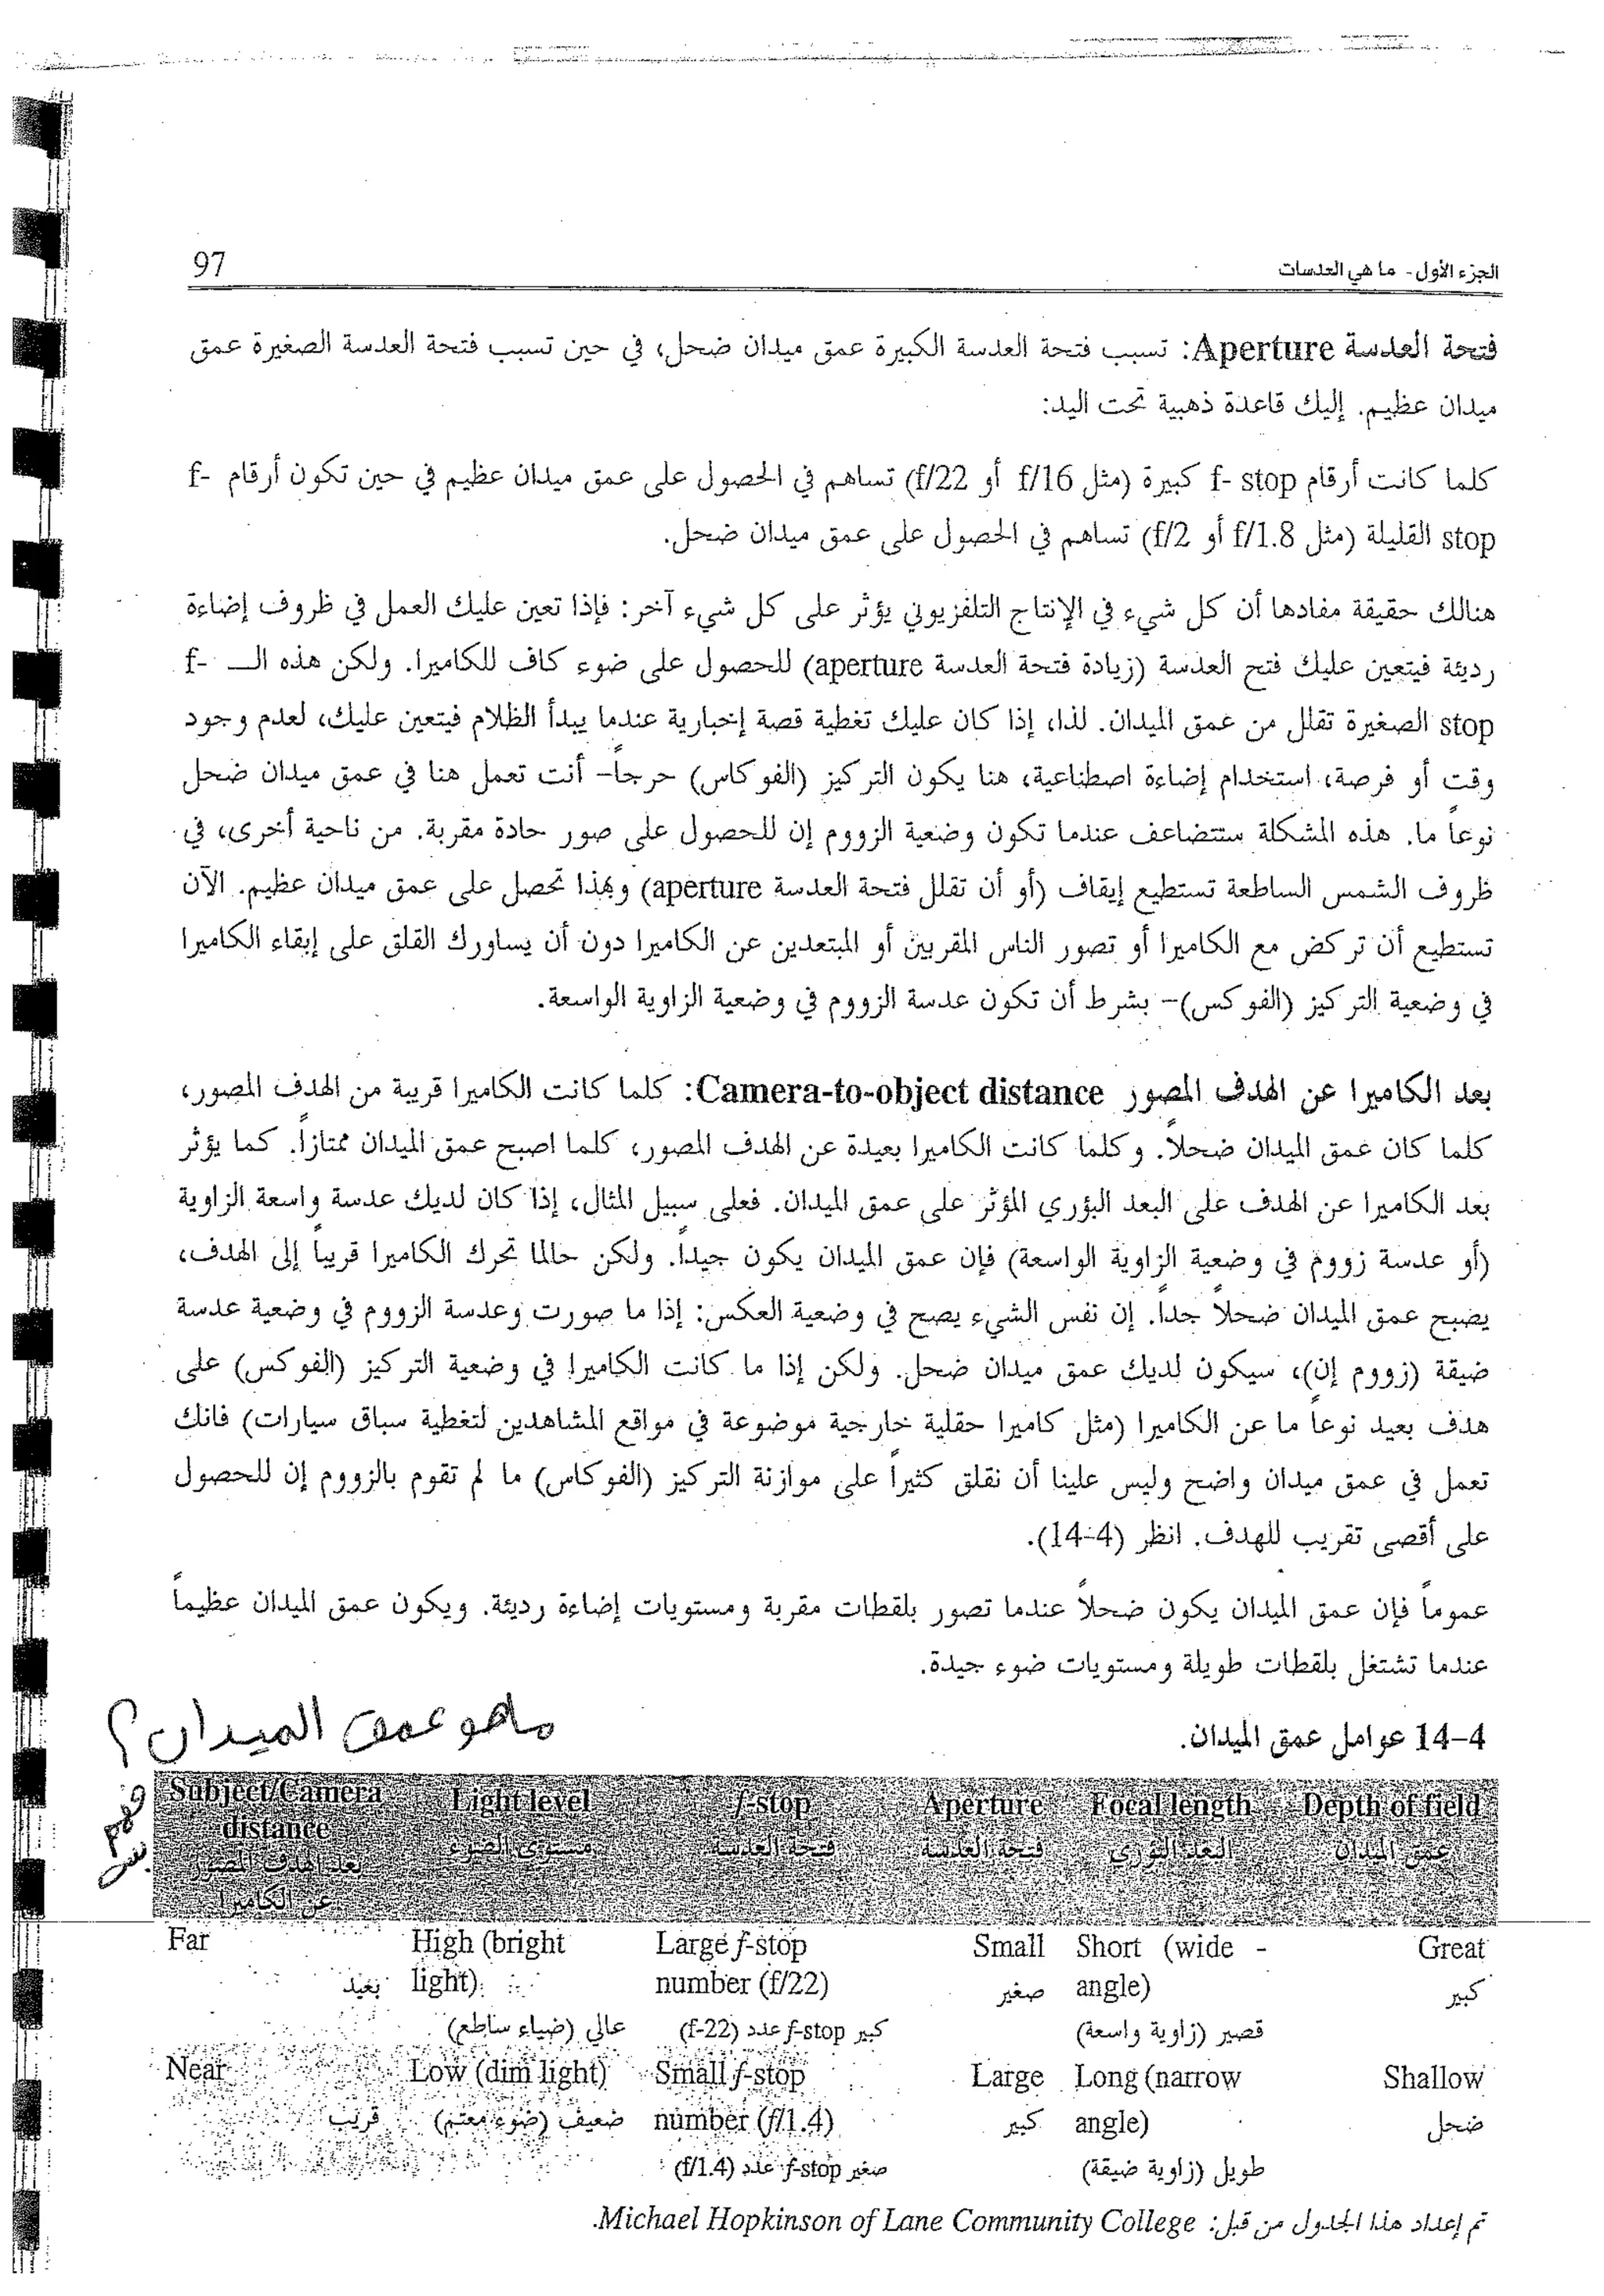 الجزء الأول- ما هي العدسات 97
فتحة العدسة Aperture: تسبب فتحة العدسة الكبيرة عمق ميدان ضحل، في حين تسبب فتحة العدسة الصغيرة عمق
ميدان عظيم. إليك قاعدة ذهبية تحت اليد:
كلما كانت أرقام f- stop كبيرة (مثل f/16 أو f/22) تساهم في الحصول على عمق ميدان عظيم في حين تكون أرقام f-
stop القليلة (مثل f/1.8 أو f/2) تساهم في الحصول على عمق ميدان ضحل.
هنالك حقيقة مفادها أن كل شيء في الإنتاج التلفزيوني يؤثر على كل شيء آخر: فإذا تعين عليك العمل في ظروف إضاءة
رديئة فيتعين عليك فتح العدسة (زيادة فتحة العدسة aperture) للحصول على ضوء كاف للكاميرا. ولكن هذه الـــ f-
stop الصغيرة تقلل من عمق الميدان. لذا، إذا كان عليك تغطية قصة إخبارية عندما يبدأ الظلام فيتعين عليك، لعدم وجود
وقت أو فرصة، استخدام إضاءة اصطناعية، هنا يكون التركيز (الفوكاس) حرجاً- أنت تعمل هنا في عمق ميدان ضحل
نوعاً ما. هذه المشكلة ستتضاعف عندما تكون وضعية الزووم إن للحصول على صور حادة مقربة. من ناحية أخرى، في
ظروف الشمس الساطعة تستطيع إيقاف (أو أن تقلل فتحة العدسة aperture) وبهذا تحصل على عمق ميدان عظيم. الآن
تستطيع أن تركض مع الكاميرا أو تصور الناس المقربين أو المبتعدين عن الكاميرا دون أن يساورك القلق على إبقاء الكاميرا
في وضعية التركيز (الفوكس)- بشرط أن تكون عدسة الزووم في وضعية الزاوية الواسعة.
بعد الكاميرا عن الهدف المصور Camera-to-object distance: كلما كانت الكاميرا قريبة من الهدف المصور،
كلما كان عمق الميدان ضحلاً. وكلما كانت الكاميرا بعيدة عن الهدف المصور، كلما اصبح عمق الميدان ممتازاً. كما يؤثر
بعد الكاميرا عن الهدف على البعد البؤري المؤثر على عمق الميدان. فعلى سبيل المثال، إذا كان لديك عدسة واسعة الزاوية
(أو عدسة زووم في وضعية الزاوية الواسعة) فإن عمق الميدان يكون جيداً. ولكن حالما تحرك الكاميرا قريباً إلى الهدف،
يصبح عمق الميدان ضحلاً جداً. إن نفس الشيء يصح في وضعية العكس: إذا ما صورت وعدسة الزووم في وضعية عدسة
ضيقة (زووم إن)، سيكون لديك عمق ميدان ضحل. ولكن إذا ما كانت الكاميرا في وضعية التركيز (الفوكس) على
هدف بعيد نوعاً ما عن الكاميرا (مثل كاميرا حقلية خارجية موضوعة في مواقع المشاهدين لتغطية سباق سيارات) فانك
تعمل في عمق ميدان واضح وليس علينا أن نقلق كثيراً على موازنة التركيز (الفوكاس) ما لم تقوم بالزووم إن للحصول
على أقصى تقريب للهدف. انظر (4-14).
عموماً فإن عمق الميدان يكون ضحلاً عندما تصور بلقطات مقربة ومستويات إضاءة رديئة. ويكون عمق الميدان عظيماً
عندما تشتغل بلقطات طويلة ومستويات ضوء جيدة.
14-4 عوامل عمق الميدان.
ماهو عمق الميدان؟
Depth of field Focal length Aperture f-stop Light level Subject/Camera
distance
عمق الميدان البعد البؤري فتحة العدسة فتحة العدسة مستوى الضوء بعد الهدف المصور
عن الكاميرا
Great Short (wide - Small Large f-stop High (bright Far
كبير angle) صغير number (f/22) light) بعيد
قصير (زاوية واسعة) كبير f-stop عدد (f-22) عالي (ضياء ساطع)
Shallow Long (narrow Large Small f-stop Low (dim light) Near
ضحل angle) كبير number (f/1.4) ضعيف (ضوء معتم) قريب
طويل (زاوية ضيقة) صغير f-stop عدد (f/1.4)
تم إعداد هذا الجدول من قبل: Michael Hopkinson of Lane Community College.